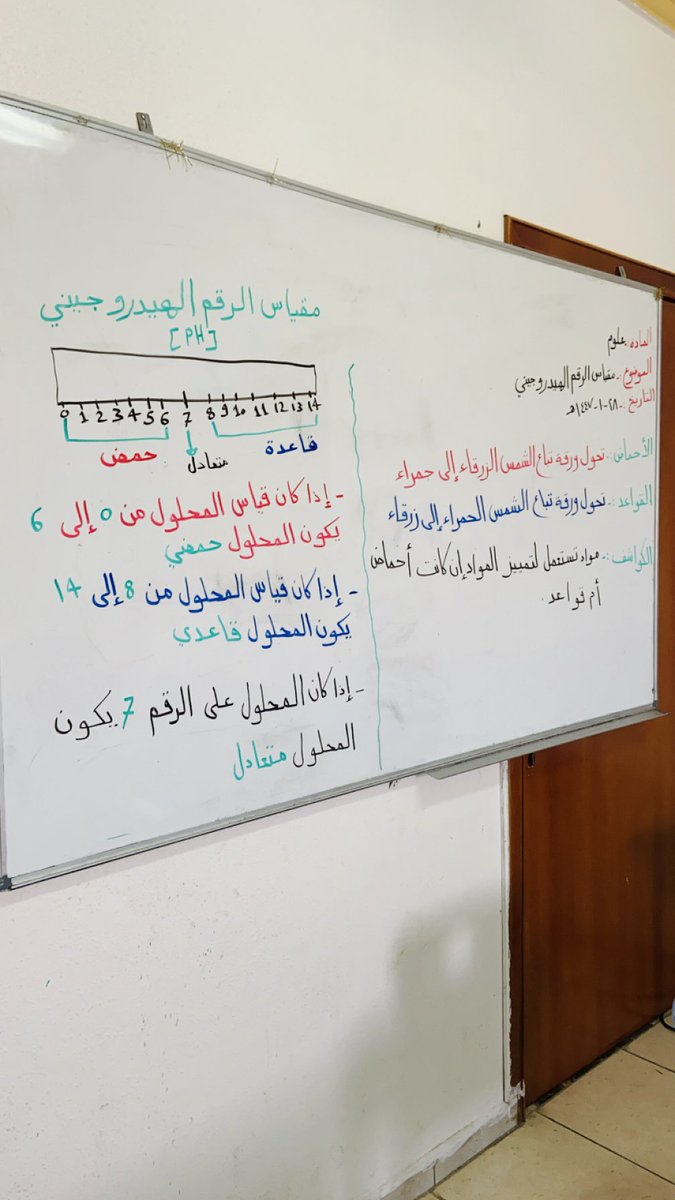 المادة:- علوم
الموضوع:- مقياس الرقم الهيدروجيني
التاريخ:- ٢٨-١-١٤٤٧هـ
الأحماض:- تحول ورقة تباع الشمس الزرقاء إلى حمراء
القواعد:- تحول ورقة تباع الشمس الحمراء إلى زرقاء
الكواشف:- مواد تستعمل لتمييز المواد إن كانت أحماض
أم قواعد.
مقياس الرقم الهيدروجيني
[PH]
0 1 2 3 4 5 6 7 8 9 10 11 12 13 14
حمض متعادل قاعدة
- إذا كان قياس المحلول من 0 إلى 6
يكون المحلول حمضي
- إذا كان قياس المحلول من 8 إلى 14
يكون المحلول قاعدي
- إذا كان المحلول على الرقم 7 يكون
المحلول متعادل